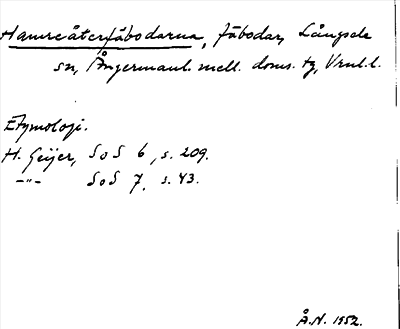 Hamreåterfäbodarna, fäbodar, Långsele
sn, Ångermanl. mell. doms. tg, Vnl. l.
Etymologi.
H. Geijer, SoS 6, s. 209.
-"- SoS 7, s. 43.
Å.N. 1952.